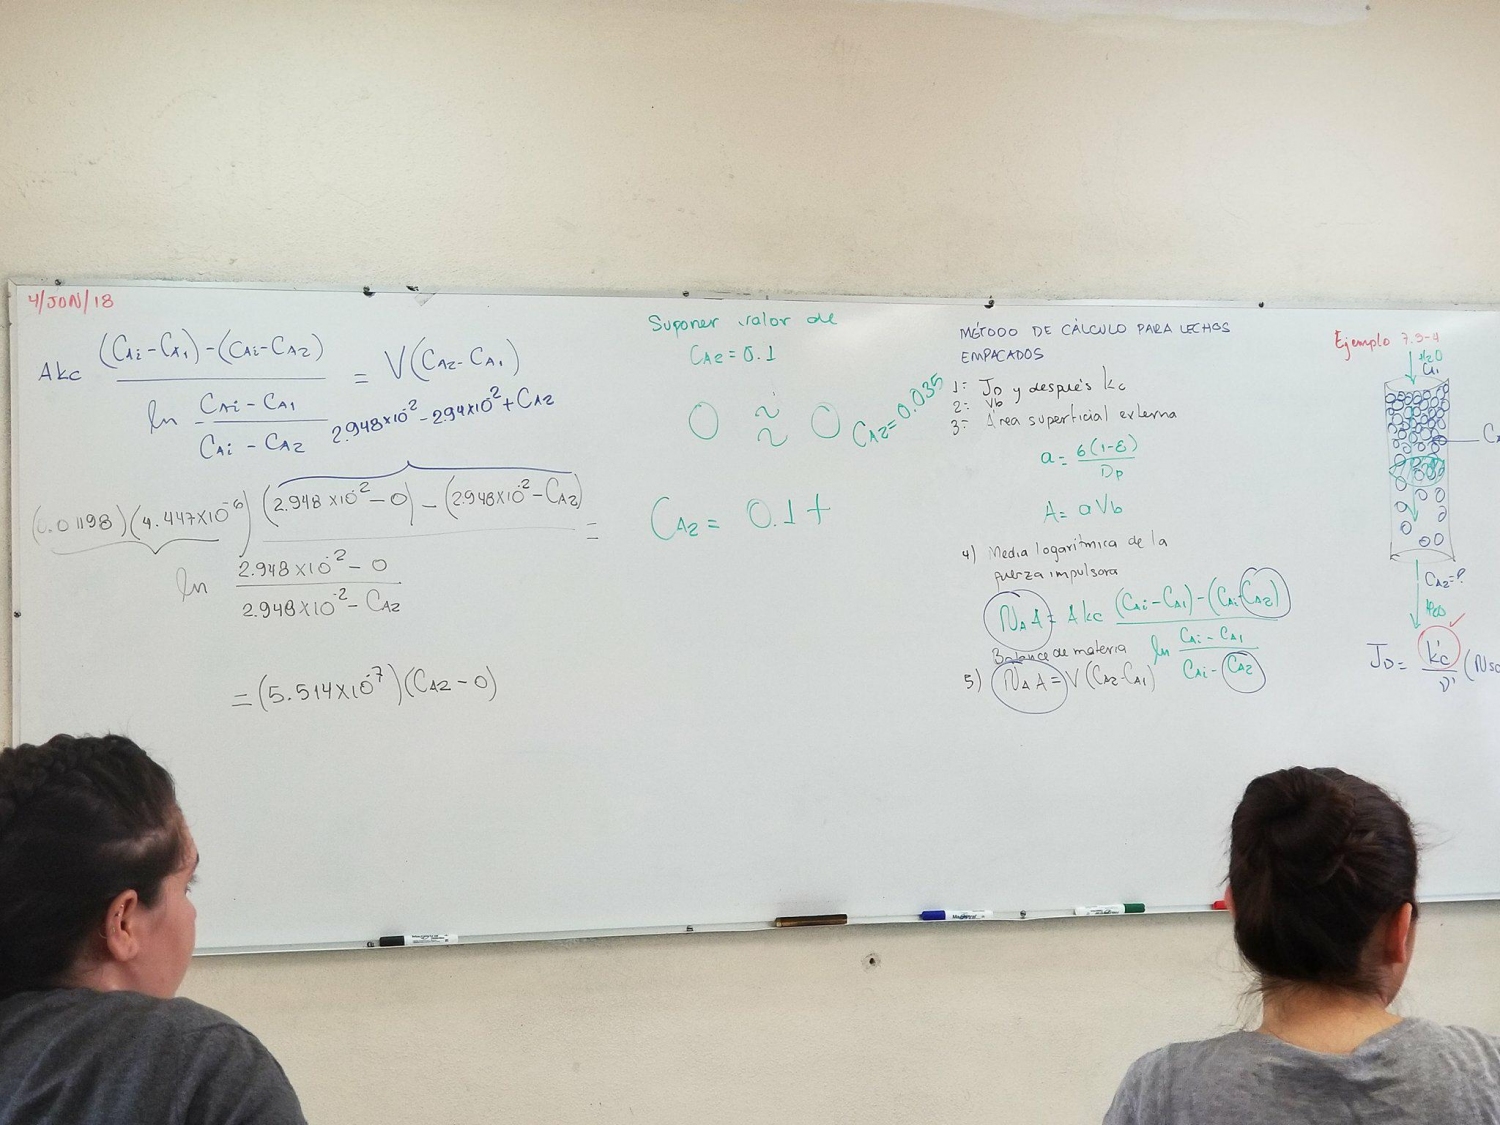 4/JUN/18
Akc (CAi-CA1)-(CAi-CA2) / ln (CAi-CA1 / CAi-CA2) = V(CA2-CA1)
2.948x10^-2-2.94x10^-2+CA2
(0.01198)(4.447x10^-6) (2.948x10^-2-0)-(2.948x10^-2-CA2) / ln (2.948x10^-2-0 / 2.948x10^-2-CA2) =
=(5.514x10^-7)(CA2-0)
Suponer valor de
CA2=0.1
0 ≈ 0
CA2=0.035
CA2= 0.1+
MÉTODO DE CÁLCULO PARA LECHOS
EMPACADOS
1:- JD y después kc
2:- Vb
3:- Área superficial externa
a= 6(1-ε) / Dp
A= aVb
4) Media logarítmica de la
fuerza impulsora
NA A= Akc (CAi-CA1)-(CAi-CA2) / ln (CAi-CA1 / CAi-CA2)
Balance de materia
5) NA A= V(CA2-CA1)
Ejemplo 7.3-4
H2O
CA1
CA2=?
H2O
JD= k'c / v' (NSc